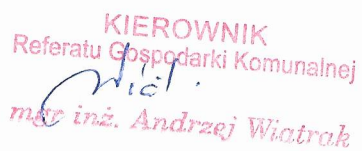 KIEROWNIK
Referatu Gospodarki Komunalnej
mgr inż. Andrzej Wiatrak